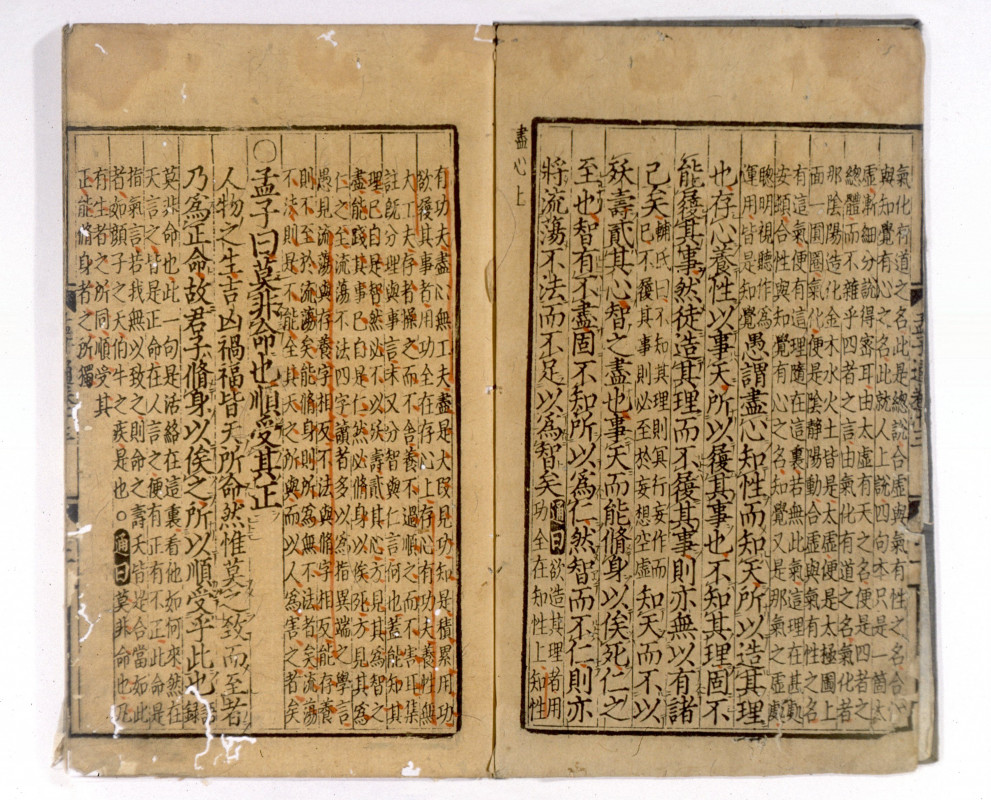 氣化有道之名此是總說合虛與氣有性之名合心
與知覺有心之名此就人上說四句本只是一箇太
虛漸細分說得密耳由太虛有天之名便是四者之
總體而不雜乎四者之言由氣化有道之名氣化者
那陰陽造化金木水火土皆是太虛便是太極圖上
面一圓圈氣化便是陰靜陽動合虛與氣有性之名
有這氣便有這理隨在這裏若無此氣這理在甚處
安頓合性與知覺有心之名知覺又是那氣之虛處
聰明視聽作為
運用皆是知覺
愚謂盡心知性而知天所以造其理
也存心養性以事天所以履其事也不知其理固不
能履其事然徒造其理而不履其事則亦無以有諸
己矣
輔氏曰不知其理則冥行妄作而
已不履其事則必至於妄想空虛
知天而不以
殀壽貳其心智之盡也事天而能脩身以俟死仁之
至也智有不盡固不知所以為仁然智而不仁則亦
將流蕩不法而不足以為智矣
通曰
欲造其理者用
功全在知性上知性
盡心上
有功夫盡心無工夫盡是大段見功知是積累用功
欲履其事者用功全在存心上存心有功夫養性無
大工夫存者操之而不舍養不過順之而不害耳集
註既分理與事言末又分智與仁言何也蓋能知其
理已自是智然必不以殀壽貳其心方見其為智之
盡能踐其事已自是仁然必脩身以俟死方見其為
仁之至流蕩不法四字讀者多以為指異端之學言
愚見流蕩與存養字相反不法與脩字相反能存養
則不至於流蕩矣能脩身則所為無不法者矣流蕩
不法則是不能全其天之所與而以人為害之者矣
○孟子曰莫非命也順受其正
人物之生吉凶禍福皆天所命然惟莫之致而至者
乃為正命故君子脩身以俟之所以順受乎此也
語
錄
莫非命也此一句是活絡在這裏看他如何來然在
天言之皆是正命在人言之便有正有不正此命是
指氣命言若我無以致之則命之壽夭皆是合當如此
者如顏子之夭伯牛之疾是也。通曰莫非命也凡
有生者之所同順受其
正能脩身者之所獨